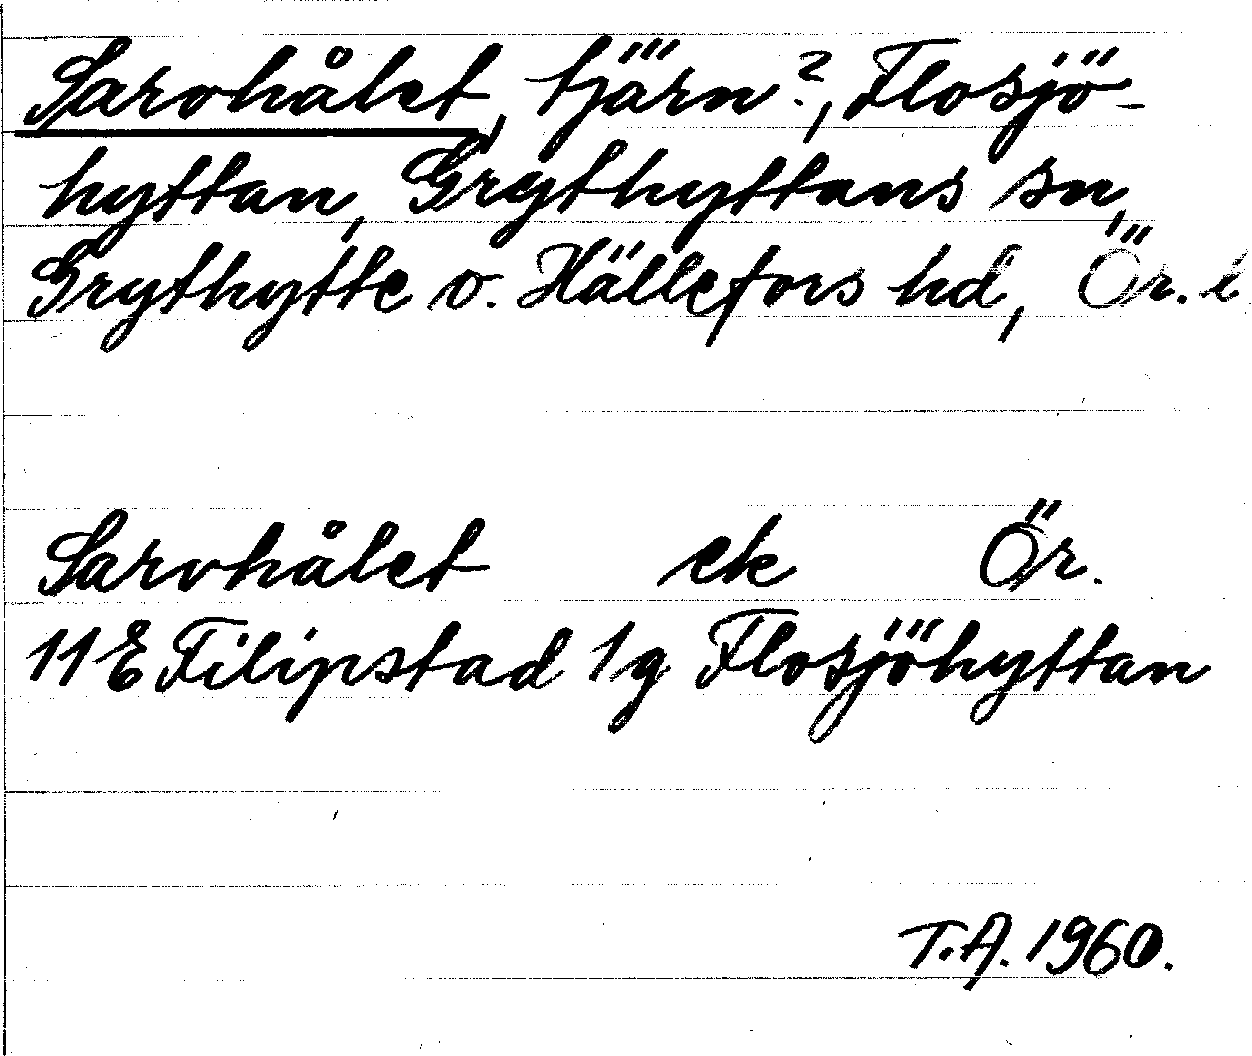 Sarvhålet, tjärn?, Flosjö-
hyttan, Grythyttans sn,
Grythytte o. Hällefors hd, Ör. l
Sarvhålet ek Ör.
11 E Filipstad 1 g Flosjöhyttan
T.A. 1960.